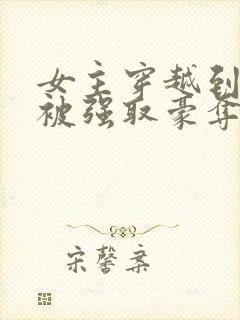 女主穿越到
被强取豪夺
宋馨案